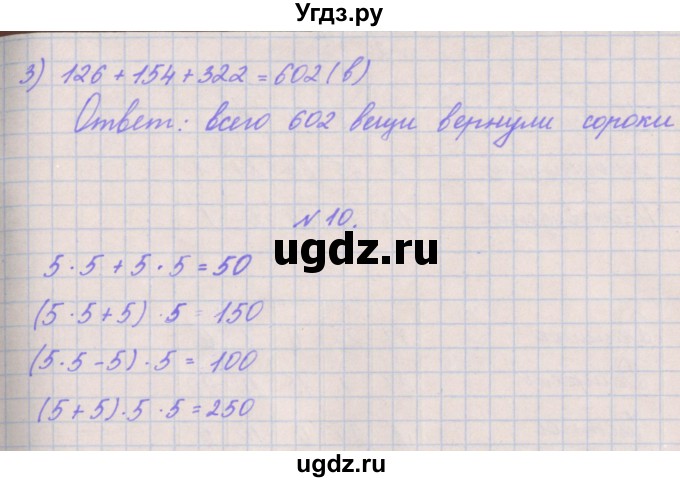 Угдз.ру
3) 126 + 154 + 322 = 602 (в)
Ответ: всего 602 вещи вернули сороки
№ 10.
ugdz.ru
5 · 5 + 5 · 5 = 50
(5 · 5 + 5) · 5 = 150
(5 · 5 - 5) · 5 = 100
(5 + 5) · 5 · 5 = 250
ugdz.ru